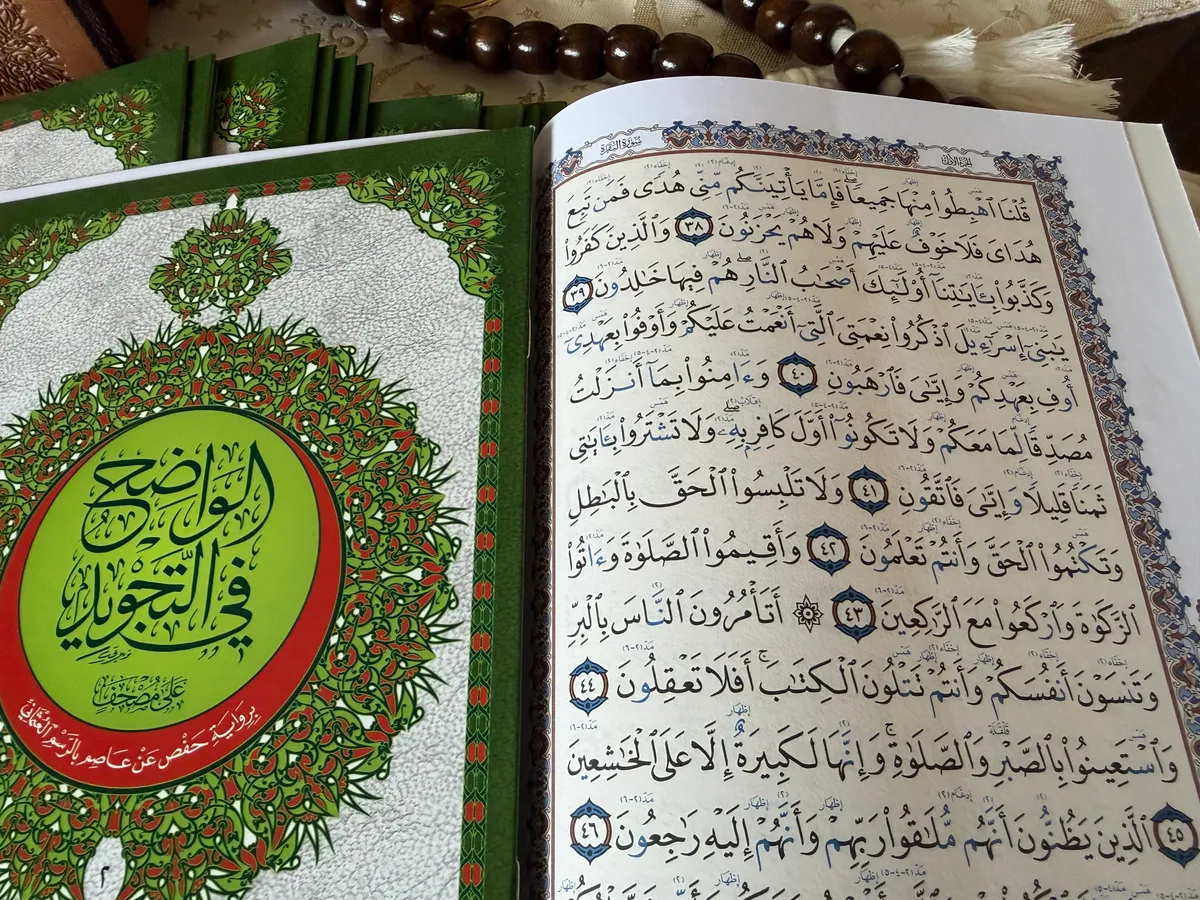 سُورَةُ البَقَرَةِ
الجزء الأول
قُلْنَا ٱهْبِطُوا۟ مِنْهَا جَمِيعًا ۖ فَإِمَّا يَأْتِيَنَّكُم مِّنِّى هُدًى فَمَن تَبِعَ
هُدَاىَ فَلَا خَوْفٌ عَلَيْهِمْ وَلَا هُمْ يَحْزَنُونَ ٣٨ وَٱلَّذِينَ كَفَرُوا۟
وَكَذَّبُوا۟ بِـَٔايَـٰتِنَآ أُو۟لَـٰٓئِكَ أَصْحَـٰبُ ٱلنَّارِ ۖ هُمْ فِيهَا خَـٰلِدُونَ ٣٩
يَـٰبَنِىٓ إِسْرَٰٓءِيلَ ٱذْكُرُوا۟ نِعْمَتِىَ ٱلَّتِىٓ أَنْعَمْتُ عَلَيْكُمْ وَأَوْفُوا۟ بِعَهْدِىٓ
أُوفِ بِعَهْدِكُمْ وَإِيَّـٰىَ فَٱرْهَبُونِ ٤٠ وَءَامِنُوا۟ بِمَآ أَنزَلْتُ
مُصَدِّقًا لِّمَا مَعَكُمْ وَلَا تَكُونُوٓا۟ أَوَّلَ كَافِرٍۭ بِهِۦ ۖ وَلَا تَشْتَرُوا۟ بِـَٔايَـٰتِى
ثَمَنًا قَلِيلًا وَإِيَّـٰىَ فَٱتَّقُونِ ٤١ وَلَا تَلْبِسُوا۟ ٱلْحَقَّ بِٱلْبَـٰطِلِ
وَتَكْتُمُوا۟ ٱلْحَقَّ وَأَنتُمْ تَعْلَمُونَ ٤٢ وَأَقِيمُوا۟ ٱلصَّلَوٰةَ وَءَاتُوا۟
ٱلزَّكَوٰةَ وَٱرْكَعُوا۟ مَعَ ٱلرَّٰكِعِينَ ٤٣ ۞ أَتَأْمُرُونَ ٱلنَّاسَ بِٱلْبِرِّ
وَتَنسَوْنَ أَنفُسَكُمْ وَأَنتُمْ تَتْلُونَ ٱلْكِتَـٰبَ ۚ أَفَلَا تَعْقِلُونَ ٤٤
وَٱسْتَعِينُوا۟ بِٱلصَّبْرِ وَٱلصَّلَوٰةِ ۚ وَإِنَّهَا لَكَبِيرَةٌ إِلَّا عَلَى ٱلْخَـٰشِعِينَ
٤٥ ٱلَّذِينَ يَظُنُّونَ أَنَّهُم مُّلَـٰقُوا۟ رَبِّهِمْ وَأَنَّهُمْ إِلَيْهِ رَٰجِعُونَ ٤٦
الوَاضِحُ
فِي التَّجْوِيدِ
عَلَى مُصْحَفٍ
بِرِوَايَةِ حَفْصٍ عَنْ عَاصِمٍ بِالرَّسْمِ العُثْمَانِيِّ
٢